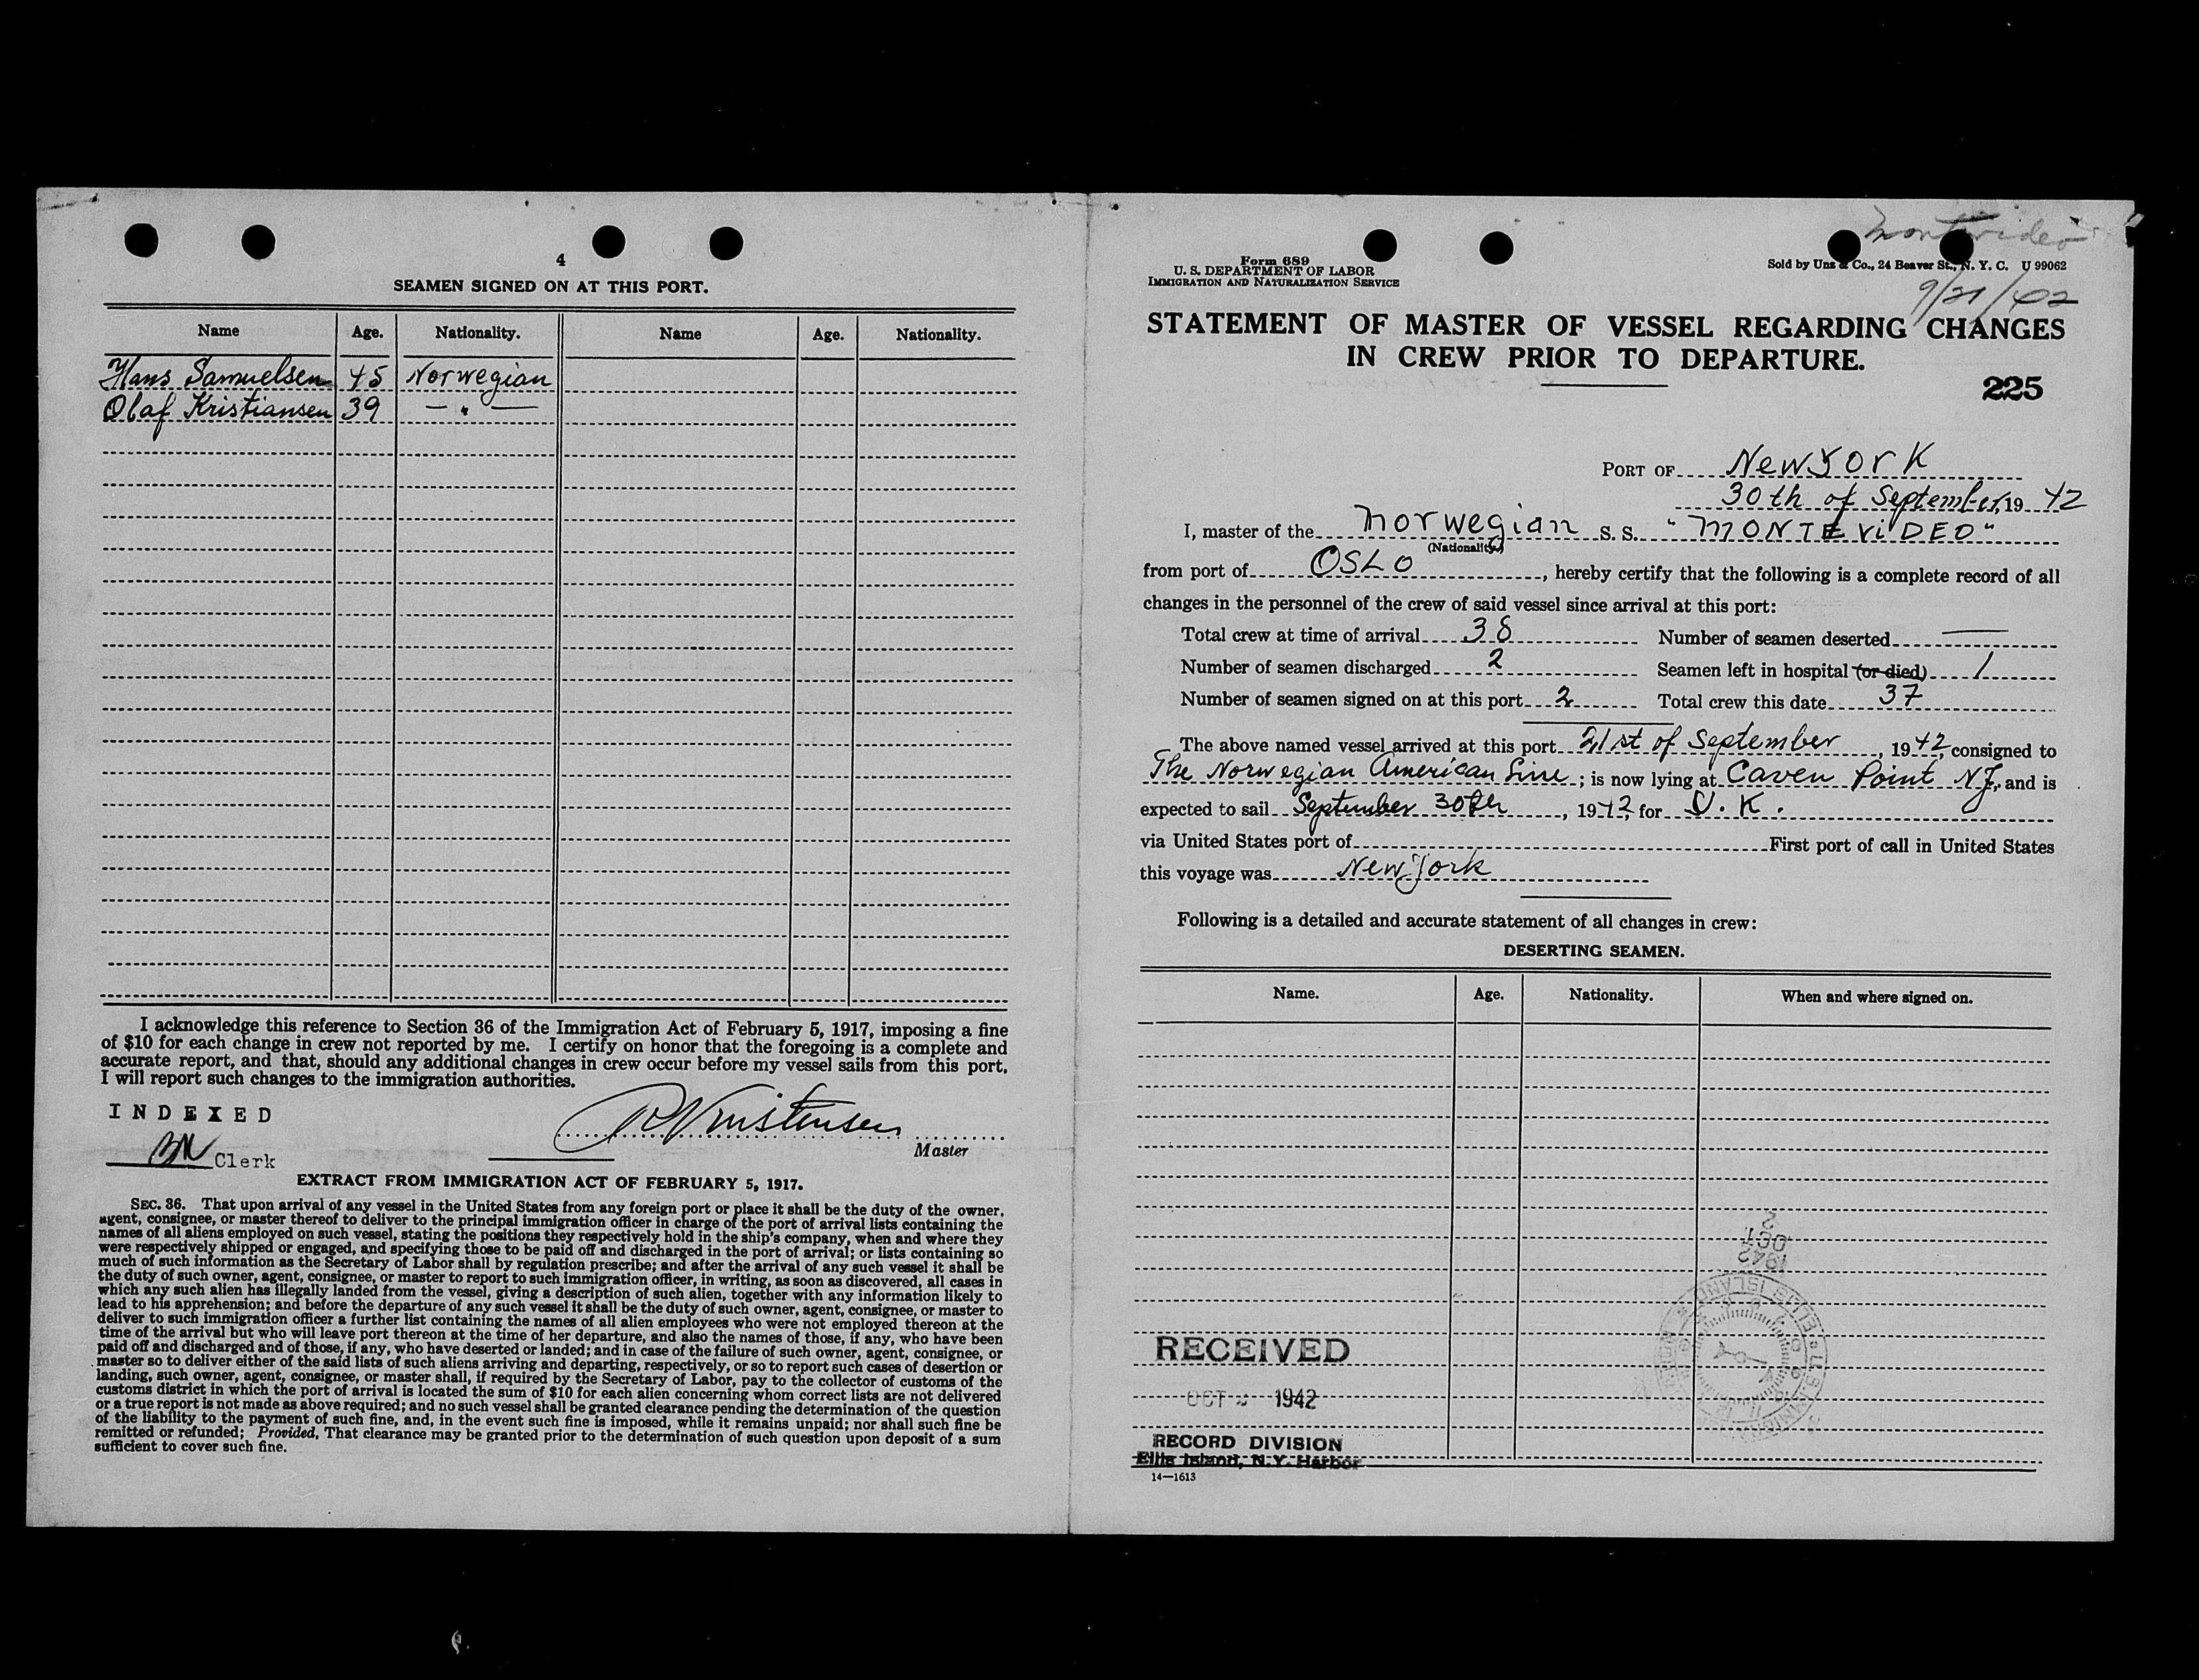 4
SEAMEN SIGNED ON AT THIS PORT.
Name Age. Nationality. Name Age. Nationality.
Hans Samuelsen 45 Norwegian
Olaf Kristiansen 39 — " —
I acknowledge this reference to Section 36 of the Immigration Act of February 5, 1917, imposing a fine
of $10 for each change in crew not reported by me. I certify on honor that the foregoing is a complete and
accurate report, and that, should any additional changes in crew occur before my vessel sails from this port,
I will report such changes to the immigration authorities.
INDEXED
Clerk
Master
EXTRACT FROM IMMIGRATION ACT OF FEBRUARY 5, 1917.
SEC. 36. That upon arrival of any vessel in the United States from any foreign port or place it shall be the duty of the owner,
agent, consignee, or master thereof to deliver to the principal immigration officer in charge of the port of arrival lists containing the
names of all aliens employed on such vessel, stating the positions they respectively hold in the ship's company, when and where they
were respectively shipped or engaged, and specifying those to be paid off and discharged in the port of arrival; or lists containing so
much of such information as the Secretary of Labor shall by regulation prescribe; and after the arrival of any such vessel it shall be
the duty of such owner, agent, consignee, or master to report to such immigration officer, in writing, as soon as discovered, all cases in
which any such alien has illegally landed from the vessel, giving a description of such alien, together with any information likely to
lead to his apprehension; and before the departure of any such vessel it shall be the duty of such owner, agent, consignee, or master to
deliver to such immigration officer a further list containing the names of all alien employees who were not employed thereon at the
time of the arrival but who will leave port thereon at the time of her departure, and also the names of those, if any, who have been
paid off and discharged and of those, if any, who have deserted or landed; and in case of the failure of such owner, agent, consignee, or
master so to deliver either of the said lists of such aliens arriving and departing, respectively, or so to report such cases of desertion or
landing, such owner, agent, consignee, or master shall, if required by the Secretary of Labor, pay to the collector of customs of the
customs district in which the port of arrival is located the sum of $10 for each alien concerning whom correct lists are not delivered
or a true report is not made as above required; and no such vessel shall be granted clearance pending the determination of the question
of the liability to the payment of such fine, and, in the event such fine is imposed, while it remains unpaid; nor shall such fine be
remitted or refunded; Provided, That clearance may be granted prior to the determination of such question upon deposit of a sum
sufficient to cover such fine.
Montevideo
Form 689
U. S. DEPARTMENT OF LABOR
IMMIGRATION AND NATURALIZATION SERVICE
Sold by Unz & Co., 24 Beaver St., N. Y. C. U 99062
9/21/42
STATEMENT OF MASTER OF VESSEL REGARDING CHANGES
IN CREW PRIOR TO DEPARTURE.
225
PORT OF New York
30th of September, 19 42
I, master of the Norwegian S. S. "MONTEViDEO"
(Nationality)
from port of OSLO, hereby certify that the following is a complete record of all
changes in the personnel of the crew of said vessel since arrival at this port:
Total crew at time of arrival 38 Number of seamen deserted —
Number of seamen discharged 2 Seamen left in hospital (or died) 1
Number of seamen signed on at this port 2 Total crew this date 37
The above named vessel arrived at this port 21st of September, 1942, consigned to
The Norwegian American Line; is now lying at Caven Point N.J., and is
expected to sail September 30th, 1942, for U.K.
via United States port of First port of call in United States
this voyage was New York
Following is a detailed and accurate statement of all changes in crew:
DESERTING SEAMEN.
Name. Age. Nationality. When and where signed on.
1942
OCT
2
RECEIVED
OCT 1942
RECORD DIVISION
Ellis Island, N.Y. Harbor
14—1613